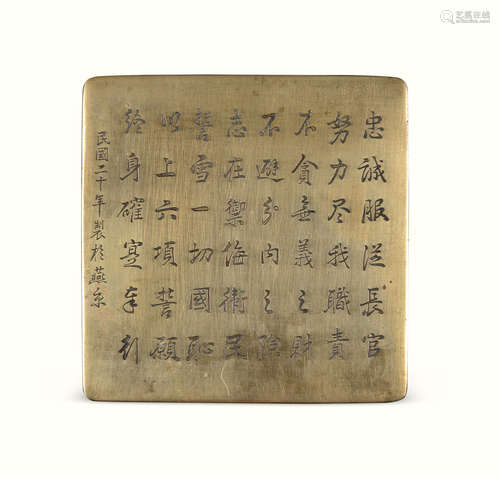 忠誠服從長官
努力尽我職責
不貪無義之財
不避分内之險
志在禦侮衛民
誓雪一切國恥
以上六項誓願
終身確定奉行
民國二十年製於燕京
艺狐在线
yachtcn.com